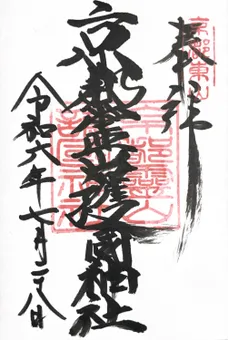 京都東山
奉拝
京都霊山護国神社
令和六年十月二八日